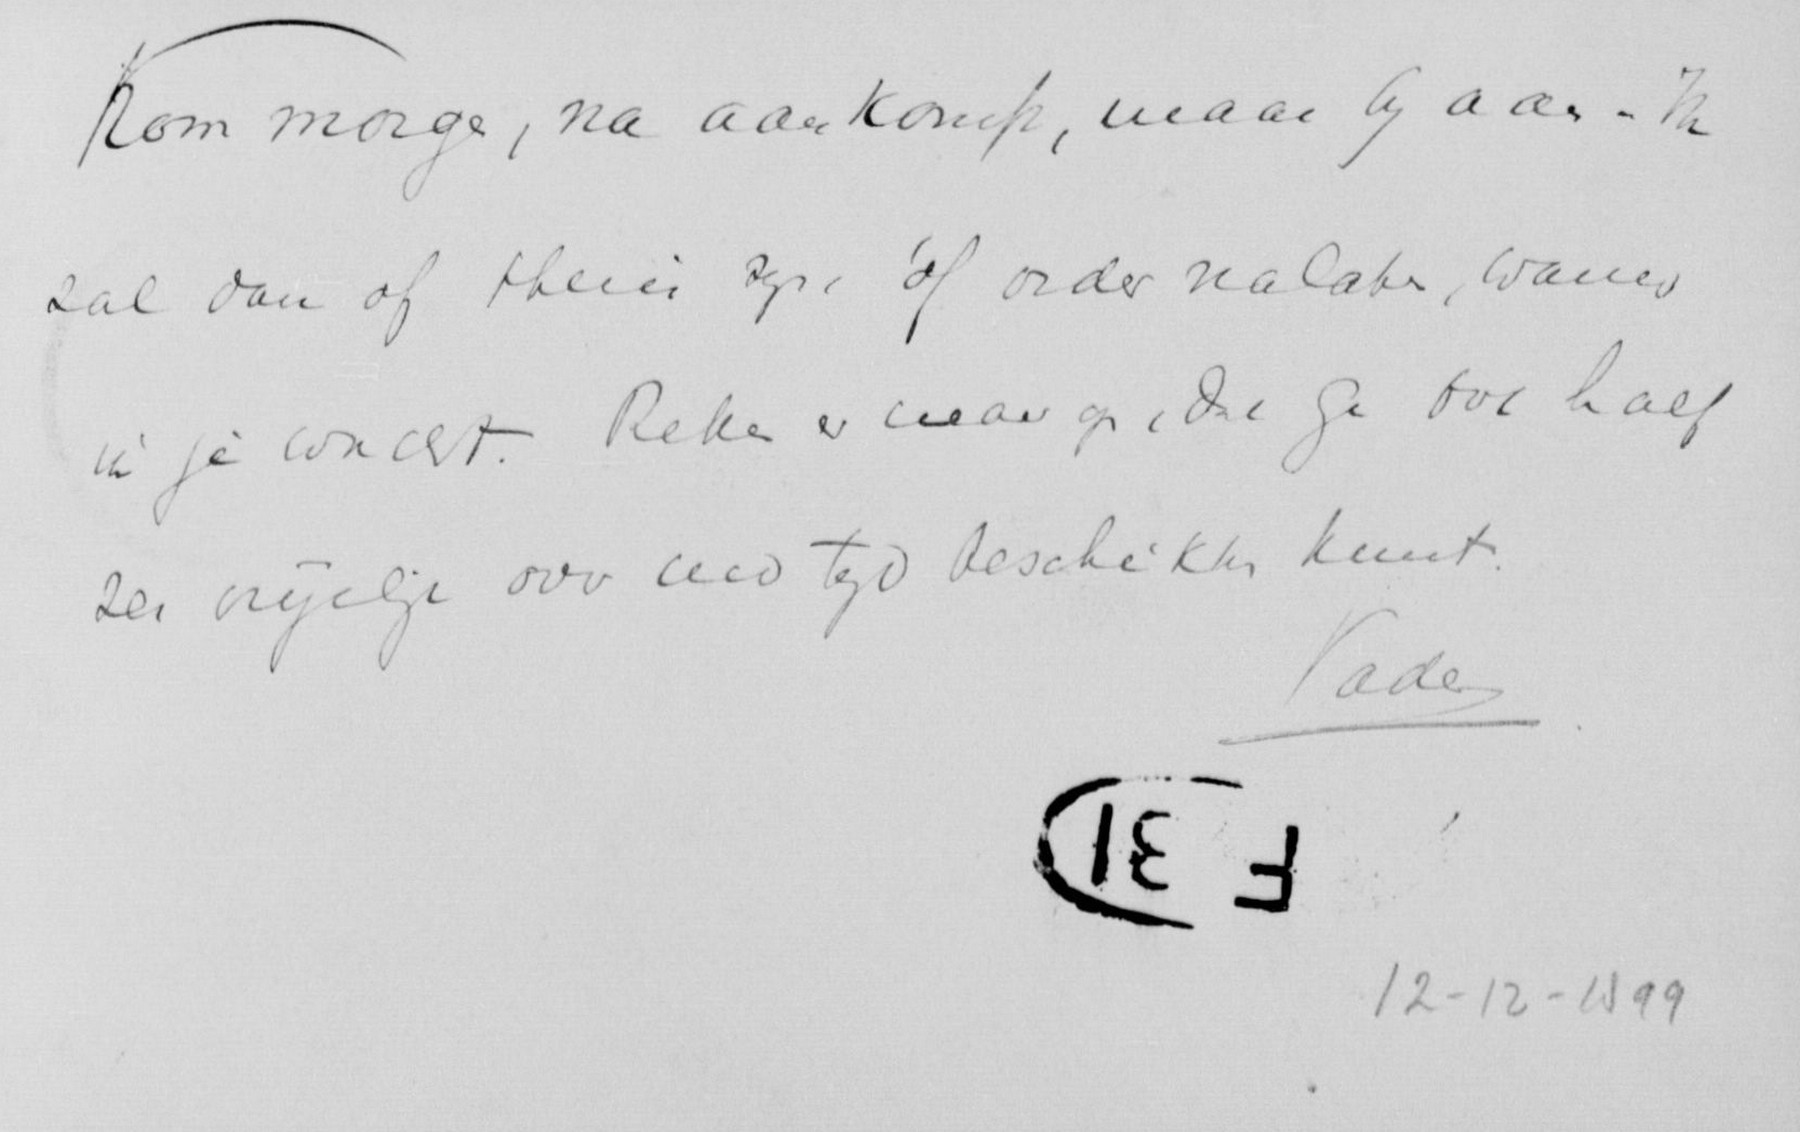 Kom morgen, na aankomst, maar bij aan. Ik
zal dan of thuis zijn òf order nalaten, waar
ik je wacht. Reken er maar op, dat ge tot half
zes vrijelijk over uw tijd beschikken kunt.
Vader
F 31
12-12-1899